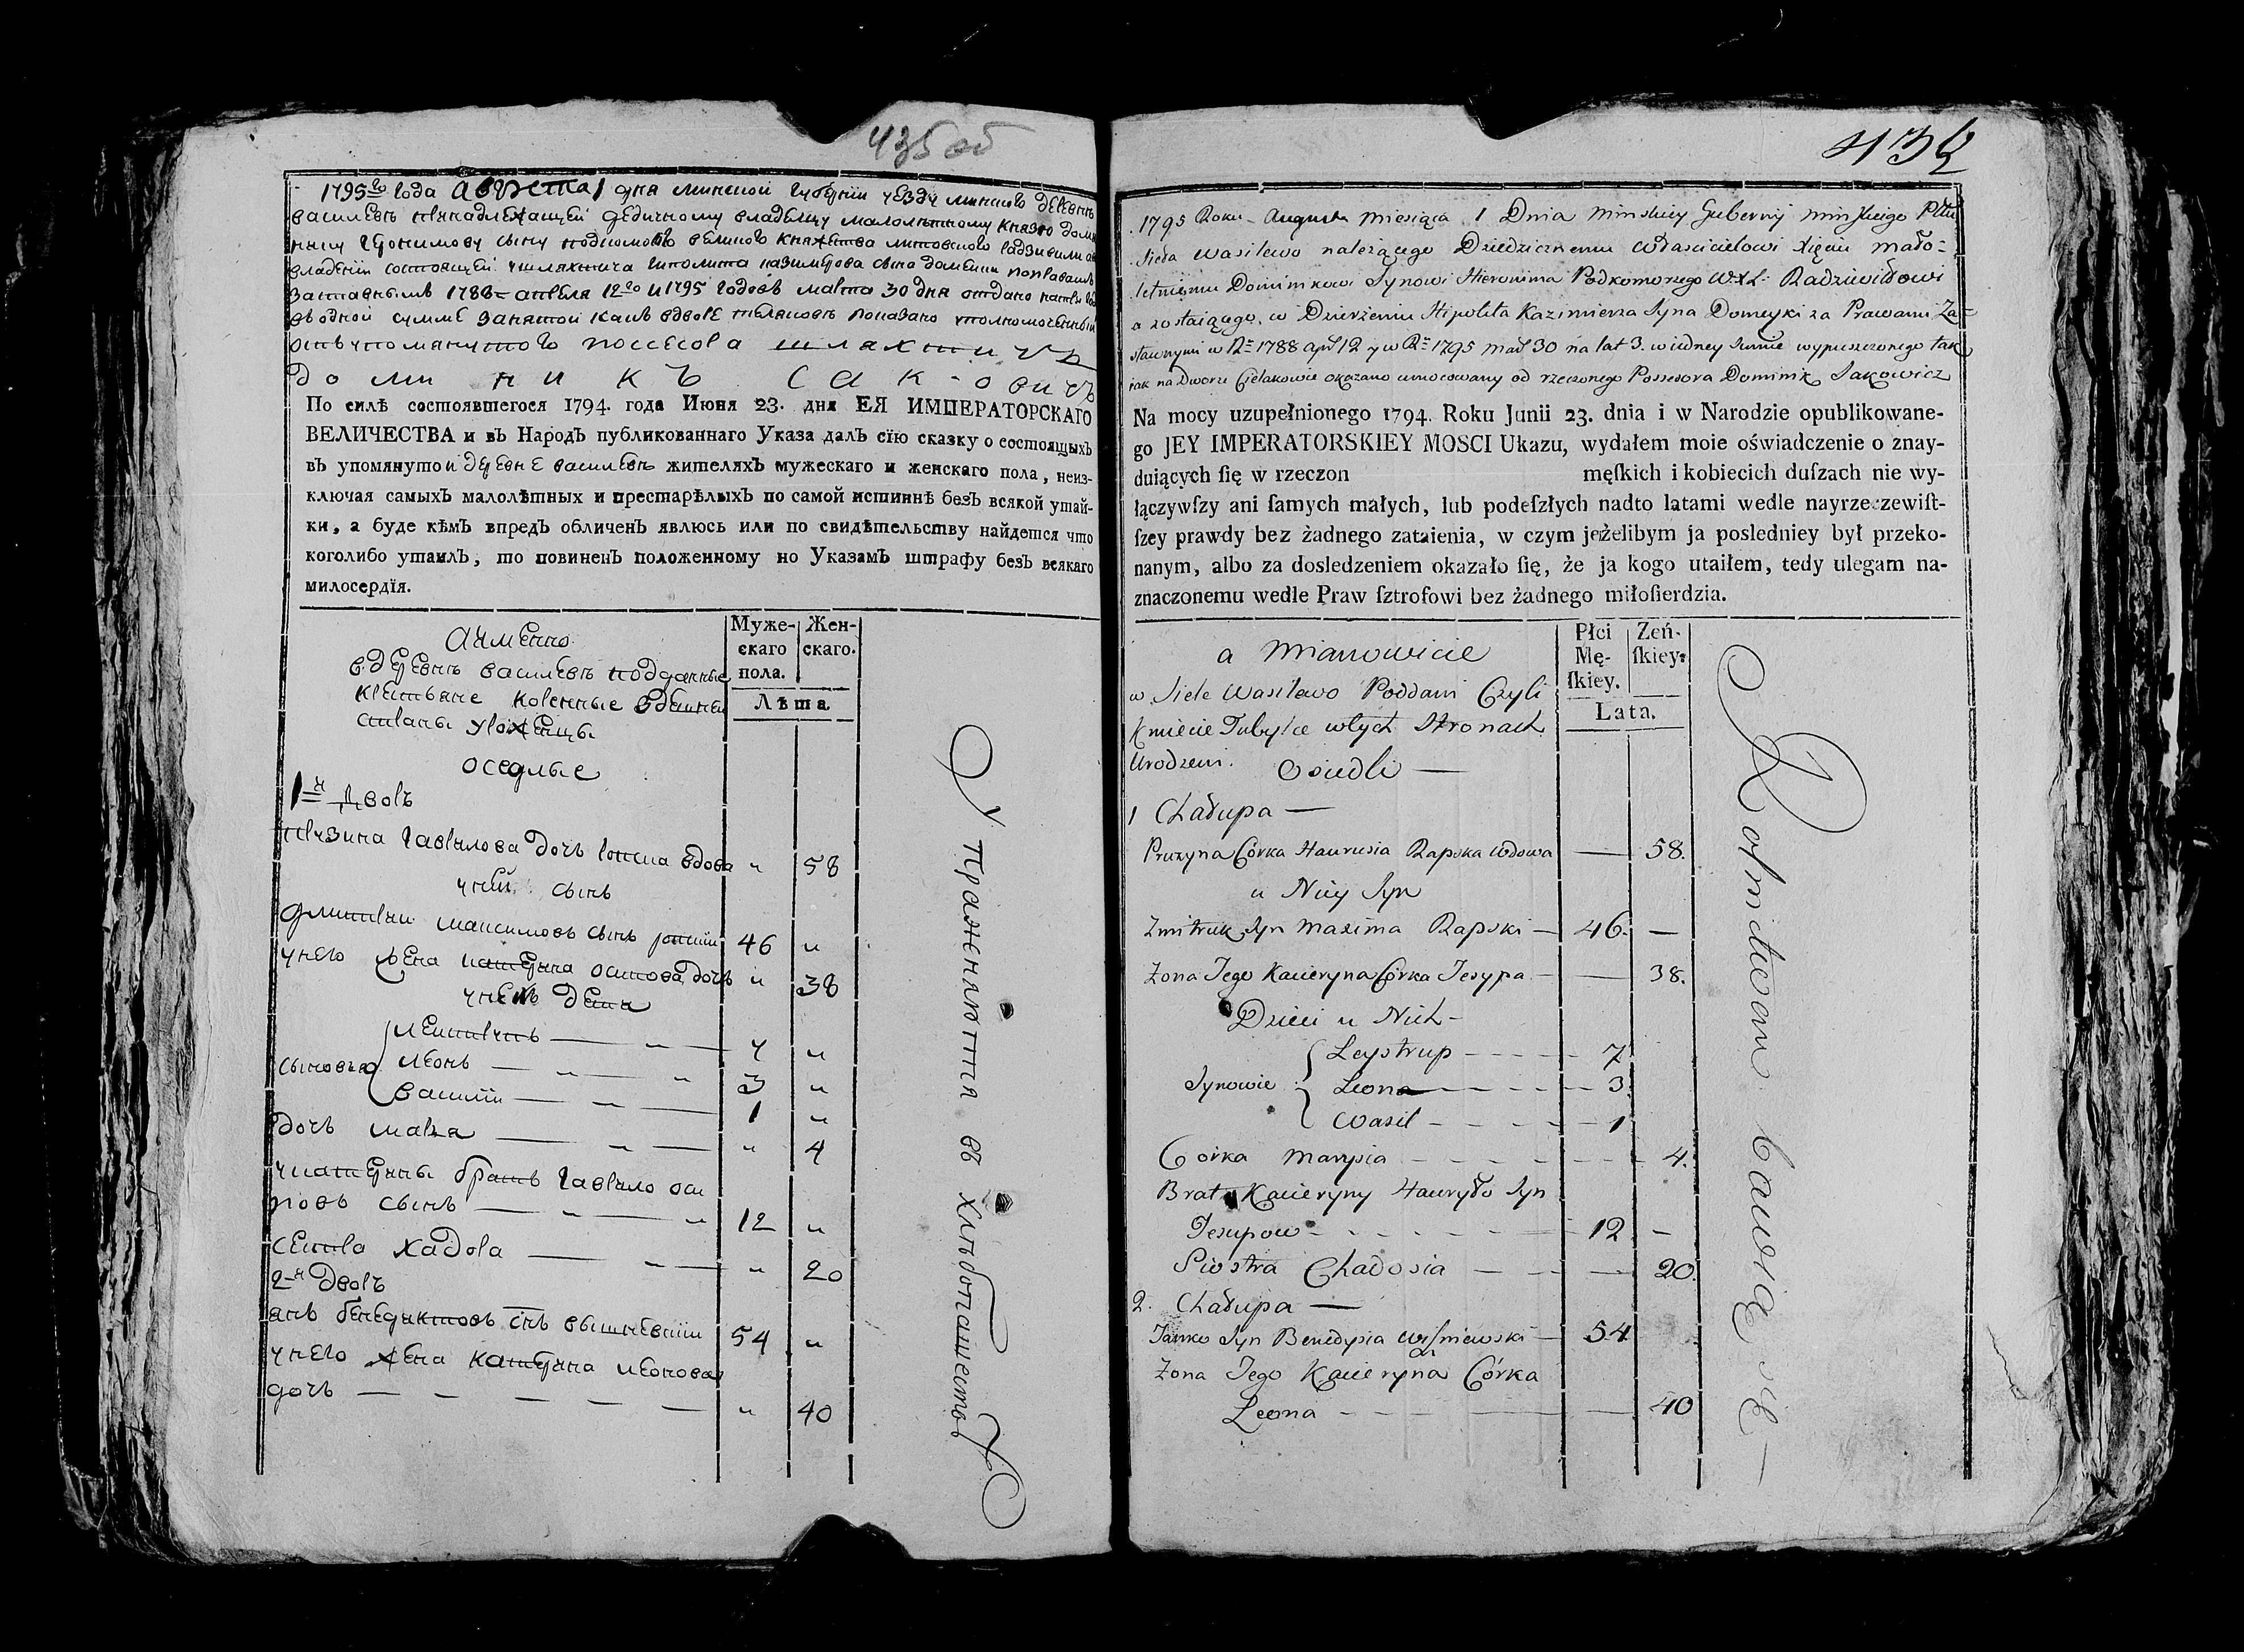 435 об
1795го года августа 1 дня минской губернии уезду минского деревнѣ
василевѣ принадлежащей дедичному владельцу малолетному князю доми
нику геронимову сыну подкоморого великого княжества литовского радзивилу а во
владении состоящей у шляхтича иполита казимерова сына домейки по правамъ
заставнымъ 1788 апреля 12го и 1795 годовъ марта 30 дня отдано на три года
въ одной сумме занятой какъ в дворе показано уполномоченный
отъ упомянутого посесора шляхтичъ
доминикъ сак-овичъ
По силѣ состоявшегося 1794. года Июня 23. дня ЕЯ ИМПЕРАТОРСКАГО
ВЕЛИЧЕСТВА и въ Народъ публикованнаго Указа далъ сїю сказку о состоящыхъ
въ упомянутои деревне василевѣ жителяхъ мужескаго и женскаго пола, неиз-
ключая самыхъ малолѣтныхъ и престарѣлыхъ по самой истиннѣ безъ всякой утай-
ки, а буде кѣмъ впредъ обличенъ явлюсь или по свидѣтельству найдется что
коголибо утаилъ, то повиненъ положенному по Указамъ штрафу безъ всякаго
милосердїя.
а именно
в деревнѣ василевѣ подданные
крестьяне коренные в данной
стороны уроженцы
оседлые
Муже-
скаго
пола.
Жен-
скаго.
Лѣта
1й дворъ
прузина гаврилова дочь рапска вдова " 58
у ней сынъ
дмитрий максимовъ сынъ рапский 46 "
у него жена катерина осипова дочь " 38
у нихъ дети
сыновья
леиструпъ 7 "
леонъ 3 "
василий 1 "
дочь марья " 4
у катерины братъ гаврило оси
повъ сынъ 12 "
сестра хадора " 20
2й дворъ
янъ бенедиктовъ снъ вышневский 54 "
у него жена катерина леонова
дочь " 40
Упражняются въ хлѣбопашествѣ
436
1795 Roku Augusta miesiąca 1 Dnia Minskiey Gubernij Minskiego Pttu
Sieła Wasilewo należącego Dziedzicznemu Właścicielowi Xięciu mało=
letniemu Dominikowi Synowi Hieronima Podkomorzego W.X.L. Radziwiłłowi
a zostaiącego w Dzierżeniu Hipolita Kazimierza Syna Domeyki za Prawami Za=
stawnymi w R= 1788 apr 12 y w R= 1795 mar 30 na lat 3. w iedney Summie wypuszczonego tak
jak na Dworze Cielakowie okazano umocowany od rzeczonego Possesora Dominik Sakowicz
Na mocy uzupełnionego 1794. Roku Junii 23. dnia i w Narodzie opublikowane-
go JEY IMPERATORSKIEY MOSCI Ukazu, wydałem moie oświadczenie o znay-
duiących ſię w rzeczon męſkich i kobiecich duſzach nie wy-
łączywſzy ani ſamych małych, lub podeſzłych nadto latami wedle nayrzeczewiſt-
ſzey prawdy bez żadnego zataienia, w czym jeżelibym ja posledniey był przeko-
nanym, albo za dosledzeniem okazało ſię, że ja kogo utaiłem, tedy ulegam na-
znaczonemu wedle Praw ſztrofowi bez żadnego miłoſierdzia.
a Mianowicie
w Siele Wasilewo Poddani Czyli
Kmiecie Tubylce w tych Stronach
Urodzeni. Osiedli —
Płci
Mę-
ſkiey.
Zeń-
ſkiey:
Lata.
1 Chałupa —
Pruzyna Córka Hawrusia Rapska Wdowa — 58.
u Niey Syn
Zmitruk Syn Maxima Rapski — 46. —
Zona Jego Kacieryna Córka Jesypa — 38.
Dzieci u Nich —
Synowie
Leystrup 7
Leona 3
Wasil 1
Córka Marysia 4.
Brat Kacieryny Hawryło Syn
Jesupow 12 —
Siostra Chadosia — 20.
2. Chałupa —
Janko Syn Benedysia Wiśniewski — 54
Zona Jego Kacieryna Córka
Leona — 40
Rolnictwem bawią się —